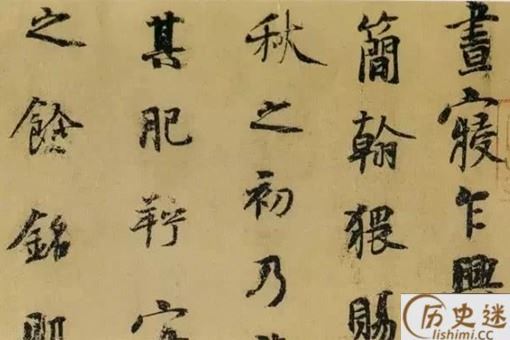 晝寢乍興
簡翰猥賜
秋之初乃
其肥羜
之餘銘
历史迷
lishimi.cc